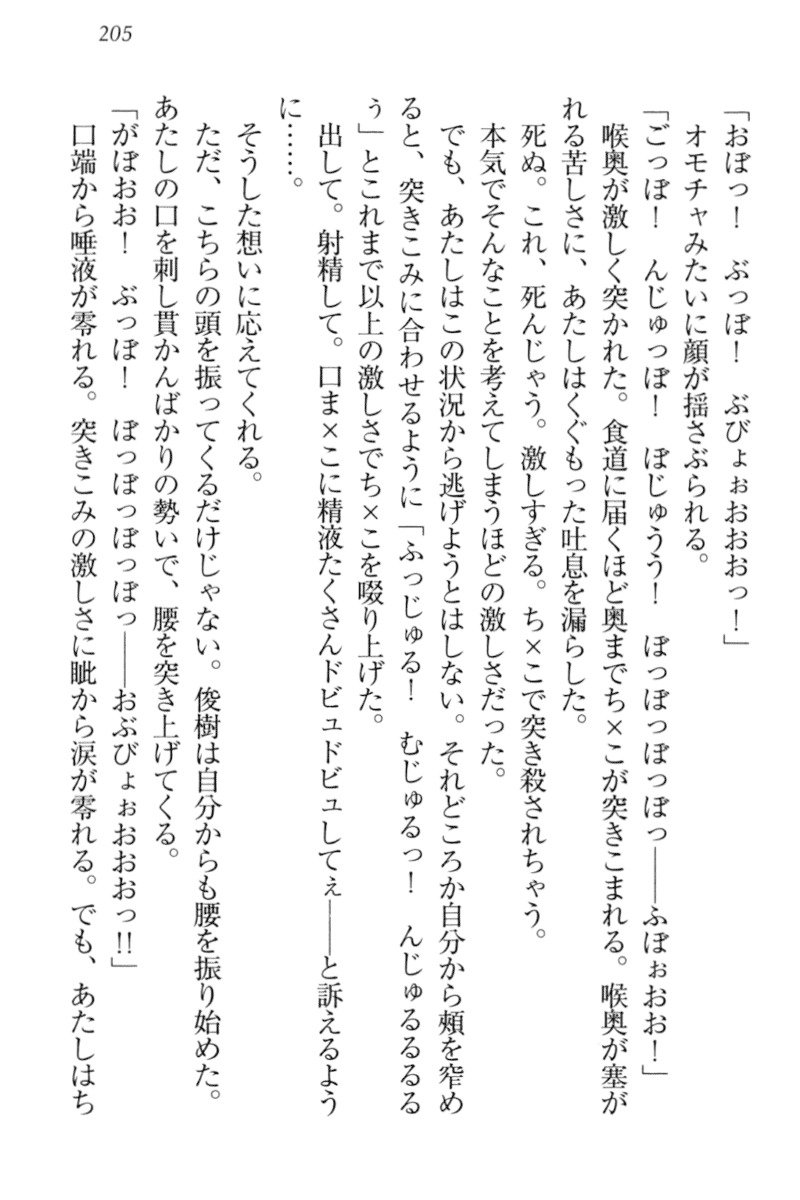 205
「おぼっ！　ぶっぼ！　ぶびょぉおおおっ！」
オモチャみたいに顔が揺さぶられる。
「ごっぼ！　んじゅっぼ！　ぼじゅうう！　ぼっぼっぼっぼっ――ふぼぉおお！」
喉奥が激しく突かれた。食道に届くほど奥までち×こが突きこまれる。喉奥が塞が
れる苦しさに、あたしはくぐもった吐息を漏らした。
死ぬ。これ、死んじゃう。激しすぎる。ち×こで突き殺されちゃう。
本気でそんなことを考えてしまうほどの激しさだった。
でも、あたしはこの状況から逃げようとはしない。それどころか自分から頬を窄め
ると、突きこみに合わせるように「ふっじゅる！　むじゅるっ！　んじゅるるるる
ぅ」とこれまで以上の激しさでち×こを啜り上げた。
出して。射精して。口ま×こに精液たくさんドビュドビュしてぇ――と訴えるよう
に……。
そうした想いに応えてくれる。
ただ、こちらの頭を振ってくるだけじゃない。俊樹は自分からも腰を振り始めた。
あたしの口を刺し貫かんばかりの勢いで、腰を突き上げてくる。
「がぼおお！　ぶっぼ！　ぼっぼっぼっぼっ――おぶびょぉおおおっ!!」
口端から唾液が零れる。突きこみの激しさに眦から涙が零れる。でも、あたしはち